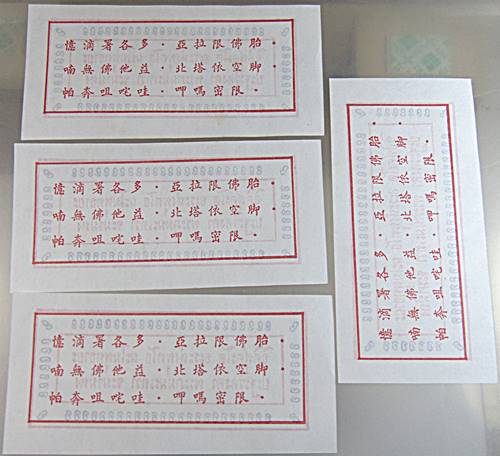 億滴署各多·亞拉限佛胎·
喃無佛他益·北塔依空脚·
帕奔咀咤哇·呷嗎密限·
億滴署各多·亞拉限佛胎·
喃無佛他益·北塔依空脚·
帕奔咀咤哇·呷嗎密限·
億滴署各多·亞拉限佛胎·
喃無佛他益·北塔依空脚·
帕奔咀咤哇·呷嗎密限·
億滴署各多·亞拉限佛胎·
喃無佛他益·北塔依空脚·
帕奔咀咤哇·呷嗎密限·